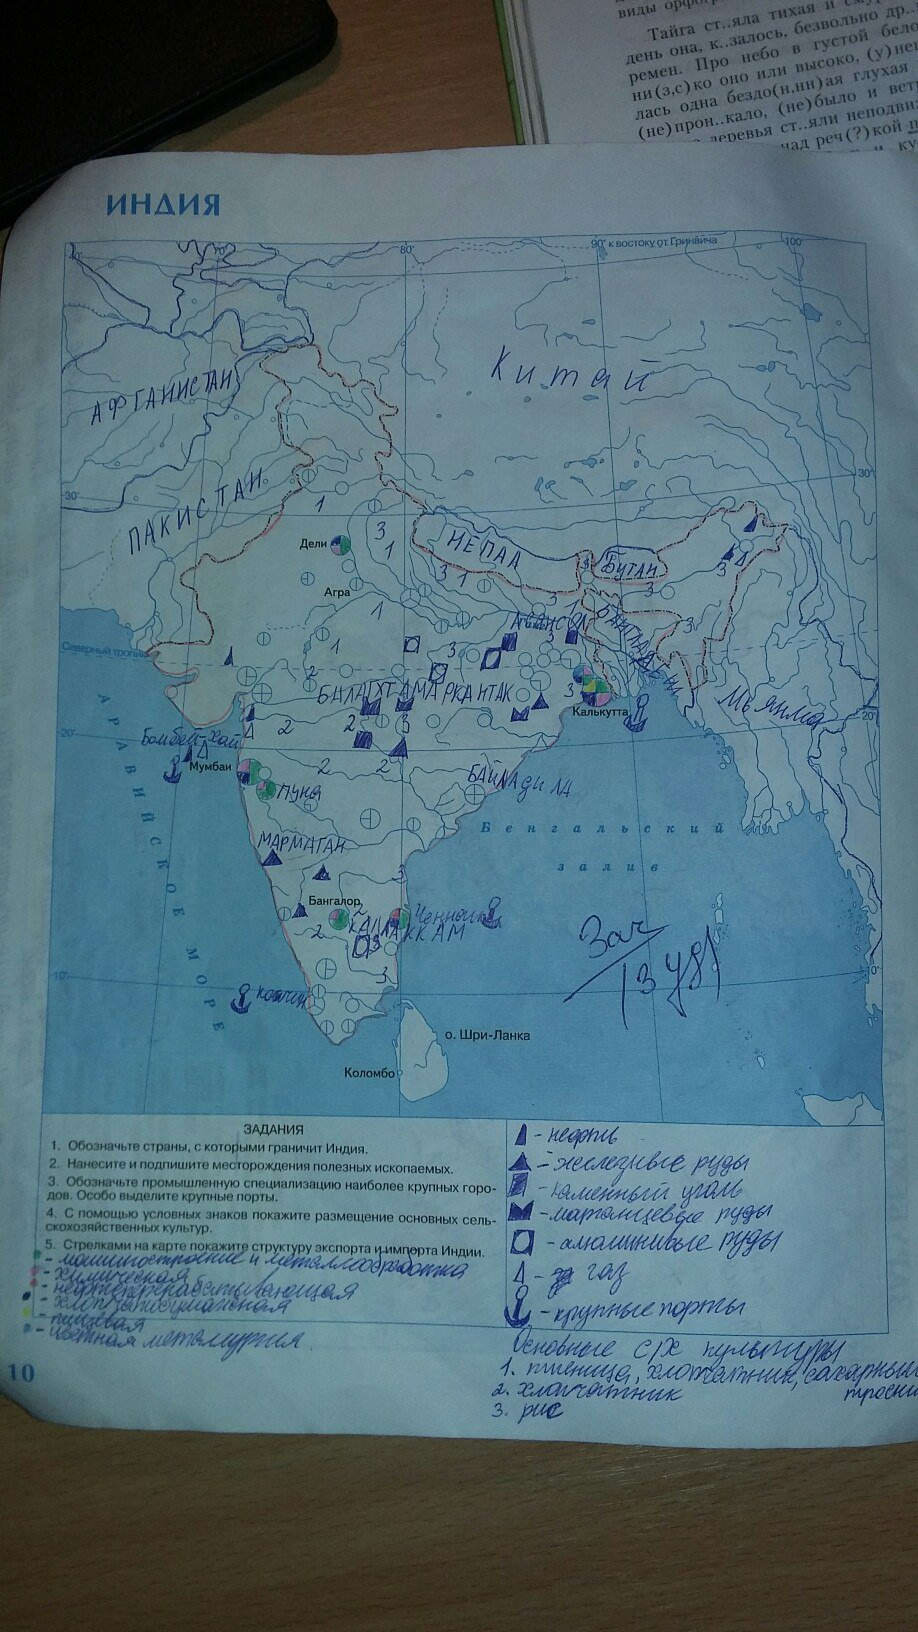 виды орфогр
Тайга ст..яла тихая и
день она, к..залось, безвольно др..
ремен. Про небо в густой бело
ни(з,с)ко оно или высоко, (у)не
лась одна бездо(н,нн)ая глухая
(не)прон..кало, (не)было и вет
деревья ст..яли неподви
над реч(?)кой
ИНДИЯ
70°
80°
90° к востоку от Гринвича
100°
Китай
АФГАНИСТАН
30°
30°
ПАКИСТАН
1
3
1
Дели
НЕПАЛ
Бутан
3
3
Агра
3 1
3
1
1
3
1
3
3
Северный тропик
2
БАЛАГХТ
АМАРКАНТАК
3
Мьянма
Калькутта
2
2
3
20°
20°
Бомбей-Хай
Мумбаи
2
2
Пуна
БАЙЛАДИЛА
Бенгальский
залив
АРАВИЙСКОЕ МОРЕ
МАРМАГАН
3
Бангалор
2
2
Ченнаи
3
3
Зач
/3 уд/
10°
10°
Кочин
о. Шри-Ланка
Коломбо
ЗАДАНИЯ
1. Обозначьте страны, с которыми граничит Индия.
2. Нанесите и подпишите месторождения полезных ископаемых.
3. Обозначьте промышленную специализацию наиболее крупных горо-
дов. Особо выделите крупные порты.
4. С помощью условных знаков покажите размещение основных сель-
скохозяйственных культур.
5. Стрелками на карте покажите структуру экспорта и импорта Индии.
- машиностроение и металлообработка
- химическая
- нефтеперерабатывающая
- хлопчатобумажная
- пищевая
- цветная металлургия.
- нефть
- железные руды
- каменный уголь
- марганцевые руды
- алюминивые руды
- газ
- крупные порты
Основные с/х культуры
1. пшеница, хлопчатник, сахарный
тросник
2. хлопчатник
3. рис
10